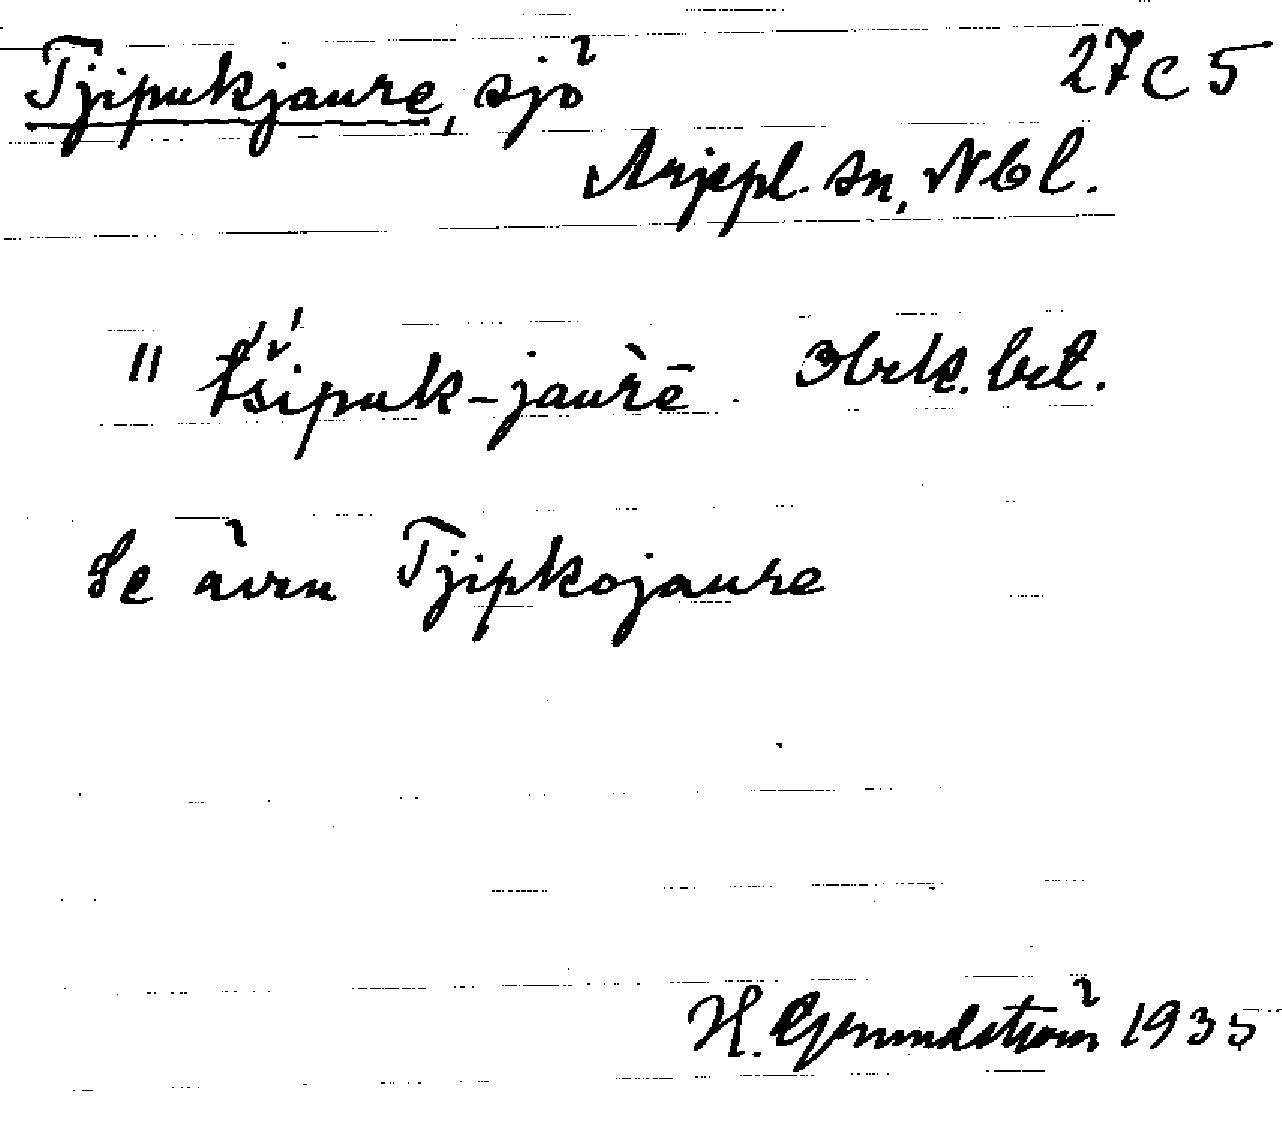 Tjipukjaure, sjö 27C5
Arjeppl. sn, Nbl.
" tši̯puk-jaurē
Se även Tjipkojaure
H. Grundström 1935